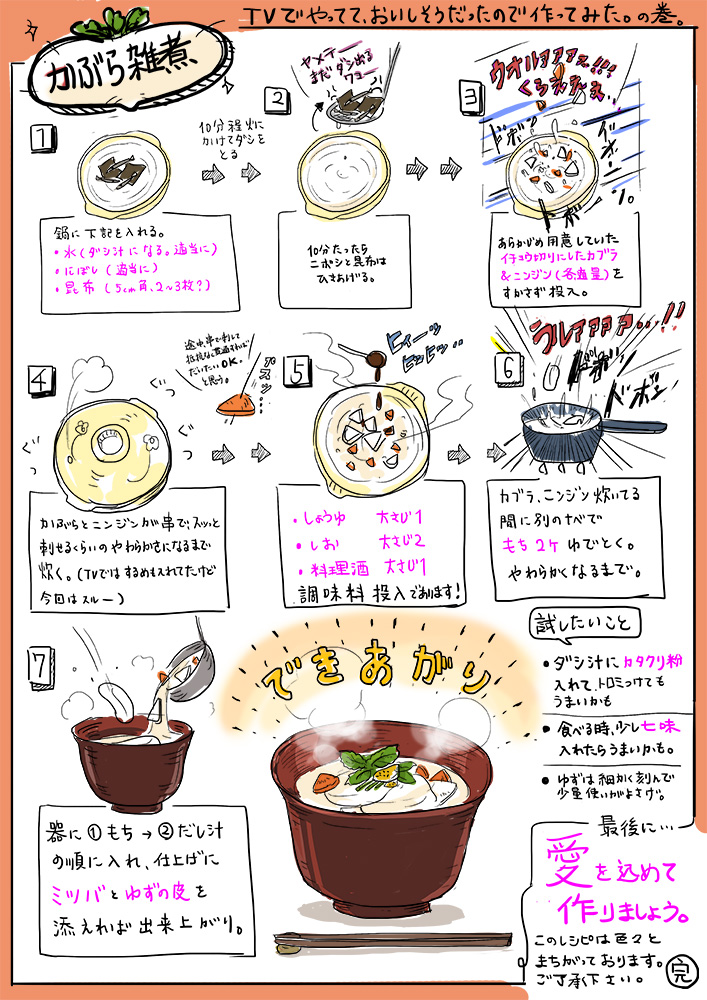 TVでやってて、おいしそうだったので作ってみた。の巻。
かぶら雑煮
1
10分程火に
かけてダシを
とる
鍋に下記を入れる。
・水(ダシ汁になる。適当に)
・にぼし(適当に)
・昆布(5cm角、2~3枚?)
2
ヤメテー
まだダシ出る
ワョー
10分たったら
ニボシと昆布は
ひきあげる。
3
ウオルァァァァ!!!
くらえぇぇぇ
ドボン
イボーン
ドボーン。
あらかじめ用意していた
イチョウ切りにしたカブラ
&ニンジン(各適量)を
すかさず投入。
4
ぐっ
ぐつ
ぐつ
途中、串で刺して
抵抗なく貫通すれば
だいたいOK.
と思う。
プスッ…
かぶらとニンジンが串で、スッと
刺せるくらいのやわらかさになるまで
炊く。(TVではするめも入れてたけど
今回はスルー)
5
ヒィーッ
ヒヒヒッ..
・しょうゆ 大さじ1
・しお 大さじ2
・料理酒 大さじ1
調味料投入であります!
6
ウルァァァァ…!!
ドボン
ドボェ
カブラ、ニンジン炊いてる
間に別のナベで
もち2ケゆでとく。
やわらかくなるまで。
7
器に①もち→②だし汁
の順に入れ、仕上げに
ミツバとゆずの皮を
添えれば出来上がり。
できあがり
試したいこと
・ダシ汁にカタクリ粉
入れて、トロミつけても
うまいかも
・食べる時、少し七味
入れたらうまいかも。
・ゆずは細かく刻んで
少量使いがよさげ。
最後に…
愛を込めて
作りましょう。
このレシピは色々と
まちがっております。
ご了承下さい。
完